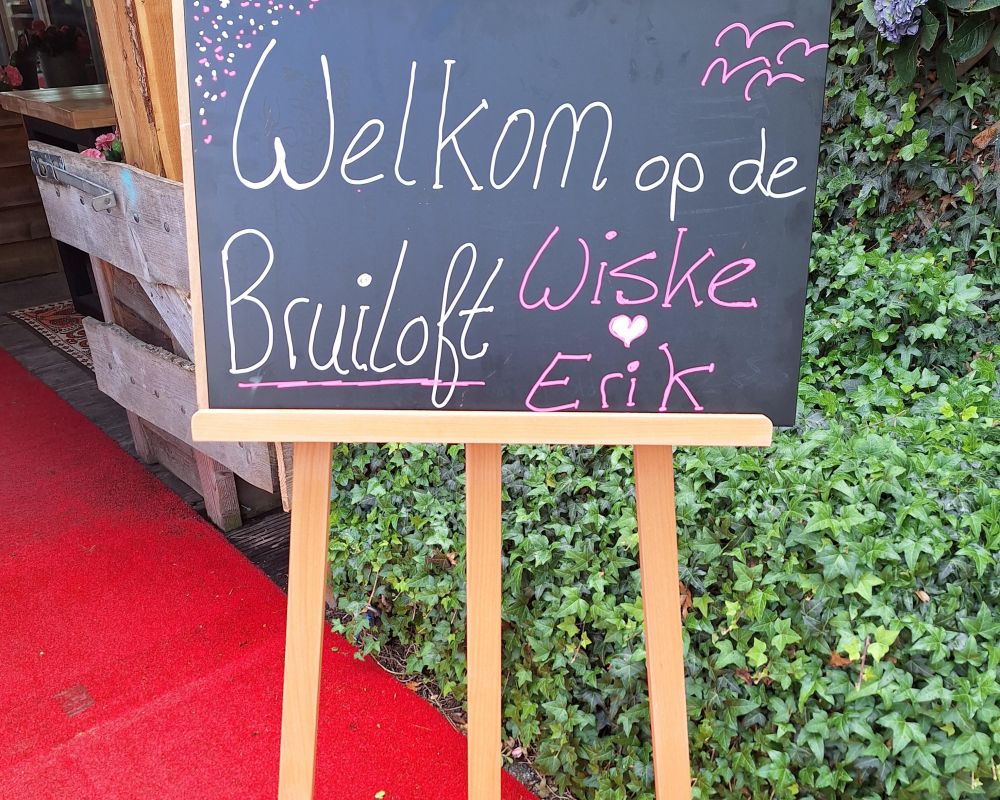 Welkom op de
Bruiloft
Wiske
Erik